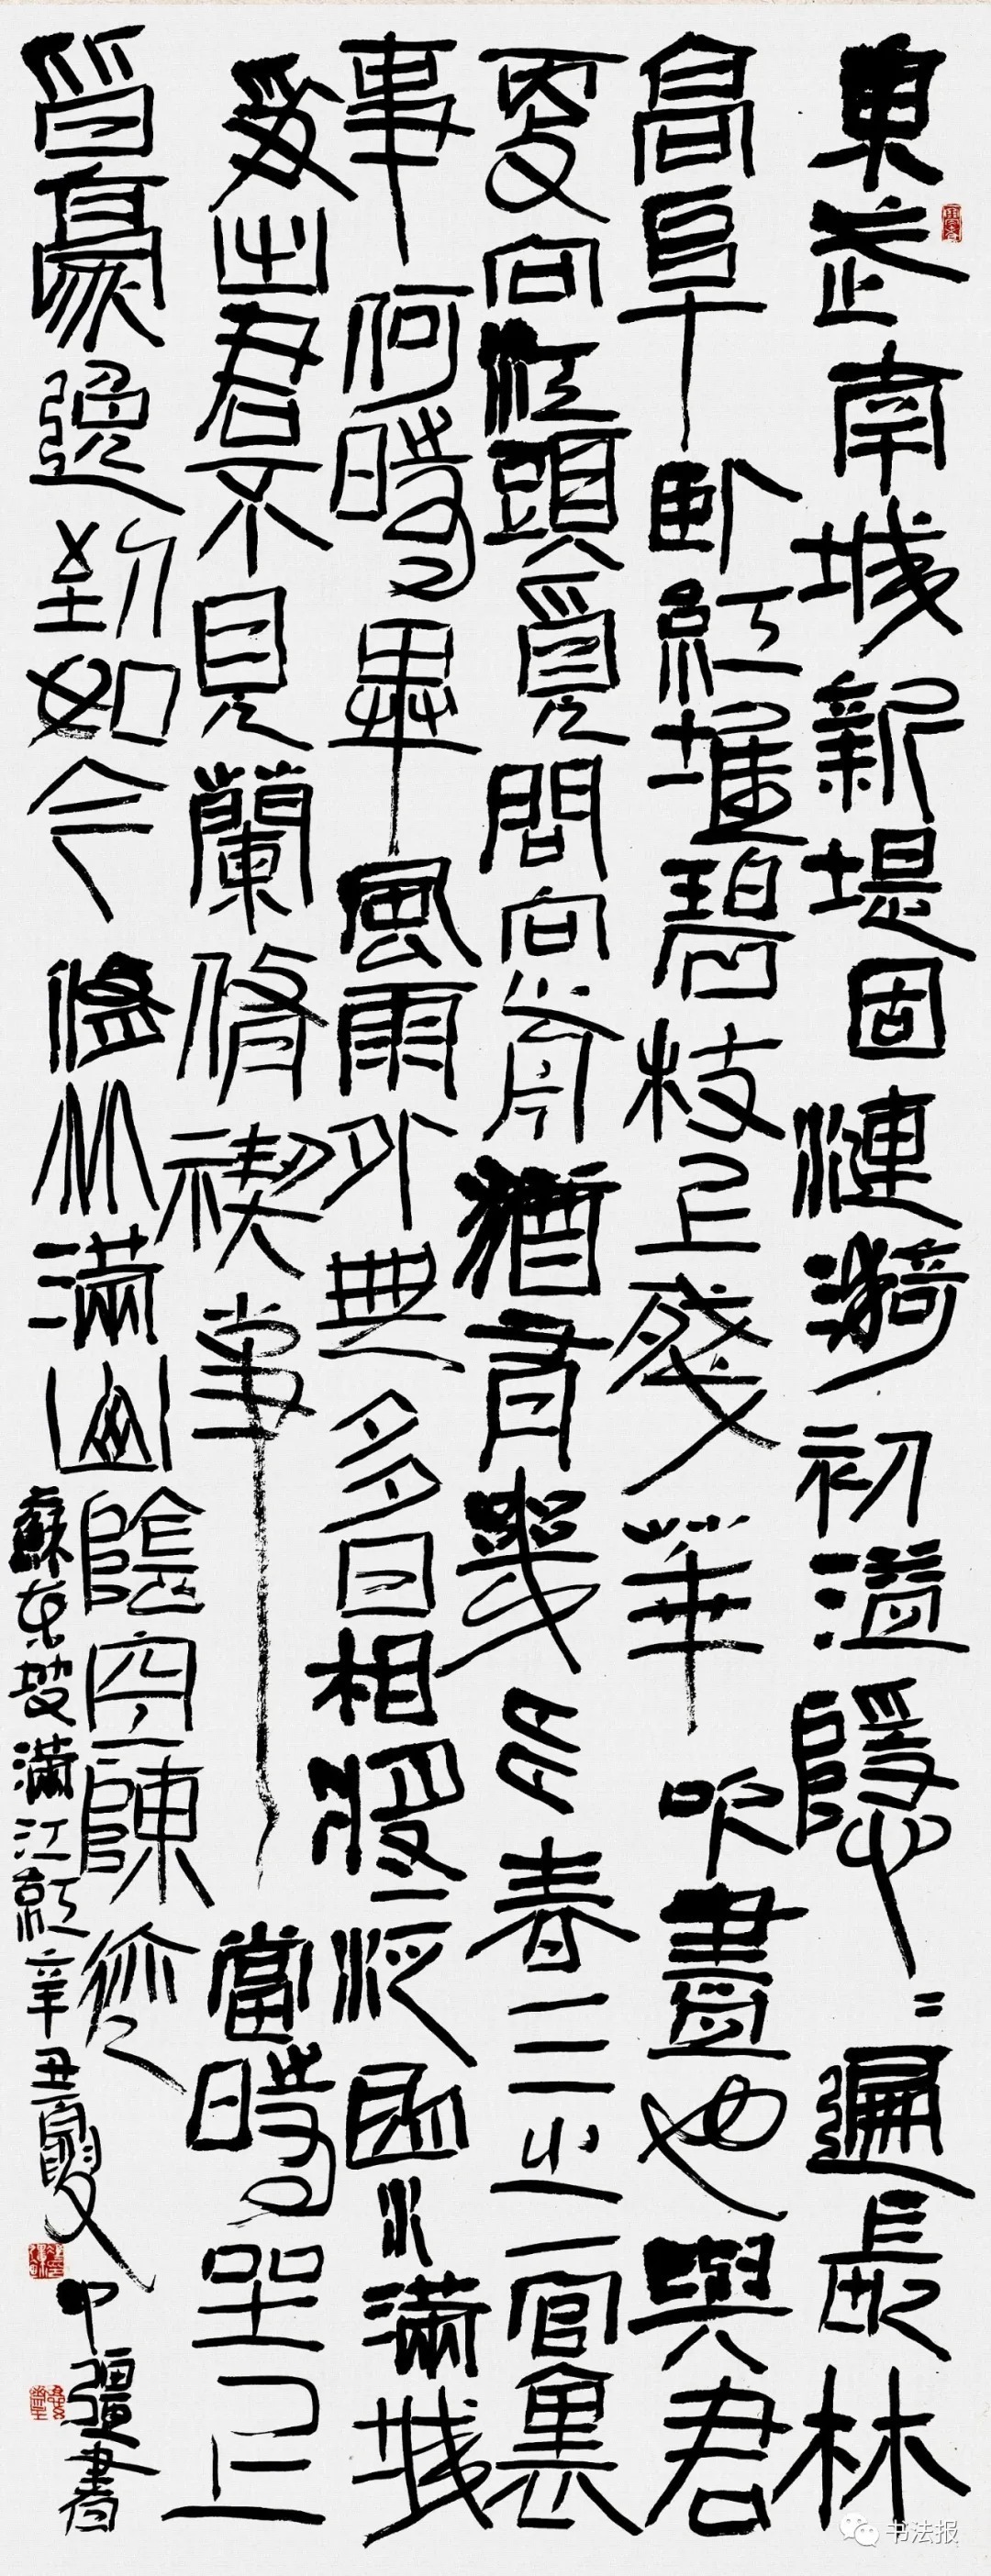 東武南城新堤固漣漪初溢隱〻遍長林
高阜卧紅堆碧枝上殘華吹盡也與君
更向江頭覓問向前猶有幾多春三之一官裏
事何時畢風雨外無多日相將泛曲水滿城
爭出君不見蘭脩禊事當時坐上
皆豪逸到如今脩竹滿山
陰空陳迹
蘇東坡滿江紅辛丑夏中疆書
书法报